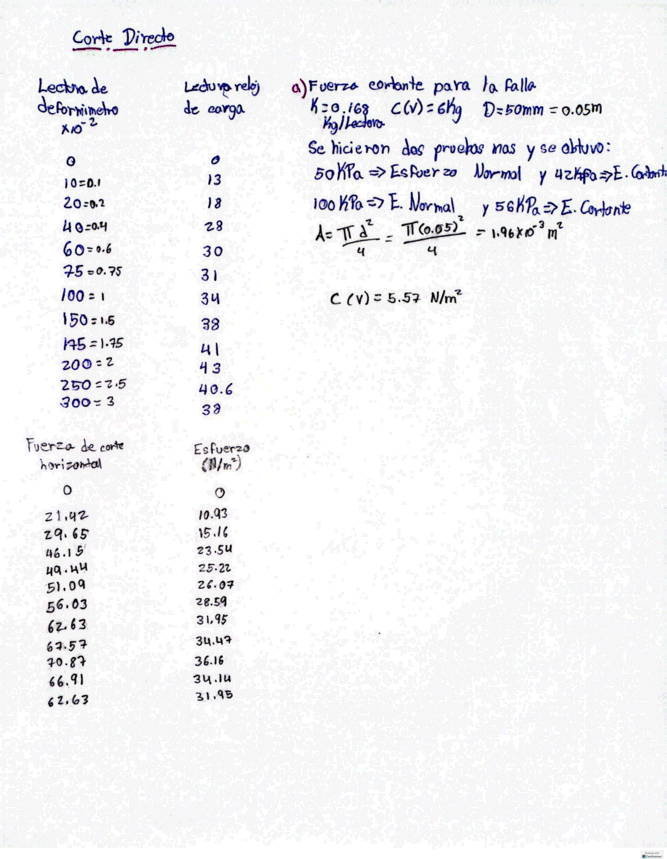 Corte Directo
Lectura de
deformimetro
x10⁻²
Lectura reloj
de carga
0 0
10=0.1 13
20=0.2 18
40=0.4 28
60=0.6 30
75=0.75 31
100=1 34
150=1.5 38
175=1.75 41
200=2 43
250=2.5 40.6
300=3 38
a) Fuerza cortante para la falla
K=0.168 C(V)=6Kg D=50mm=0.05m
Kg/Lectura
Se hicieron dos pruebas mas y se obtuvo:
50KPa⇒Esfuerzo Normal y 42Kpa⇒E. Cortante
100KPa⇒E. Normal y 56KPa⇒E. Cortante
A= πd²/4 = π(0.05)²/4 = 1.96x10⁻³ m²
C(V)=5.57 N/m²
Fuerza de corte
horizontal
Esfuerzo
(N/m²)
0 0
21.42 10.93
29.65 15.16
46.15 23.54
49.44 25.22
51.09 26.07
56.03 28.59
62.63 31,95
67.57 34.47
70.87 36.16
66.91 34.14
62.63 31.95